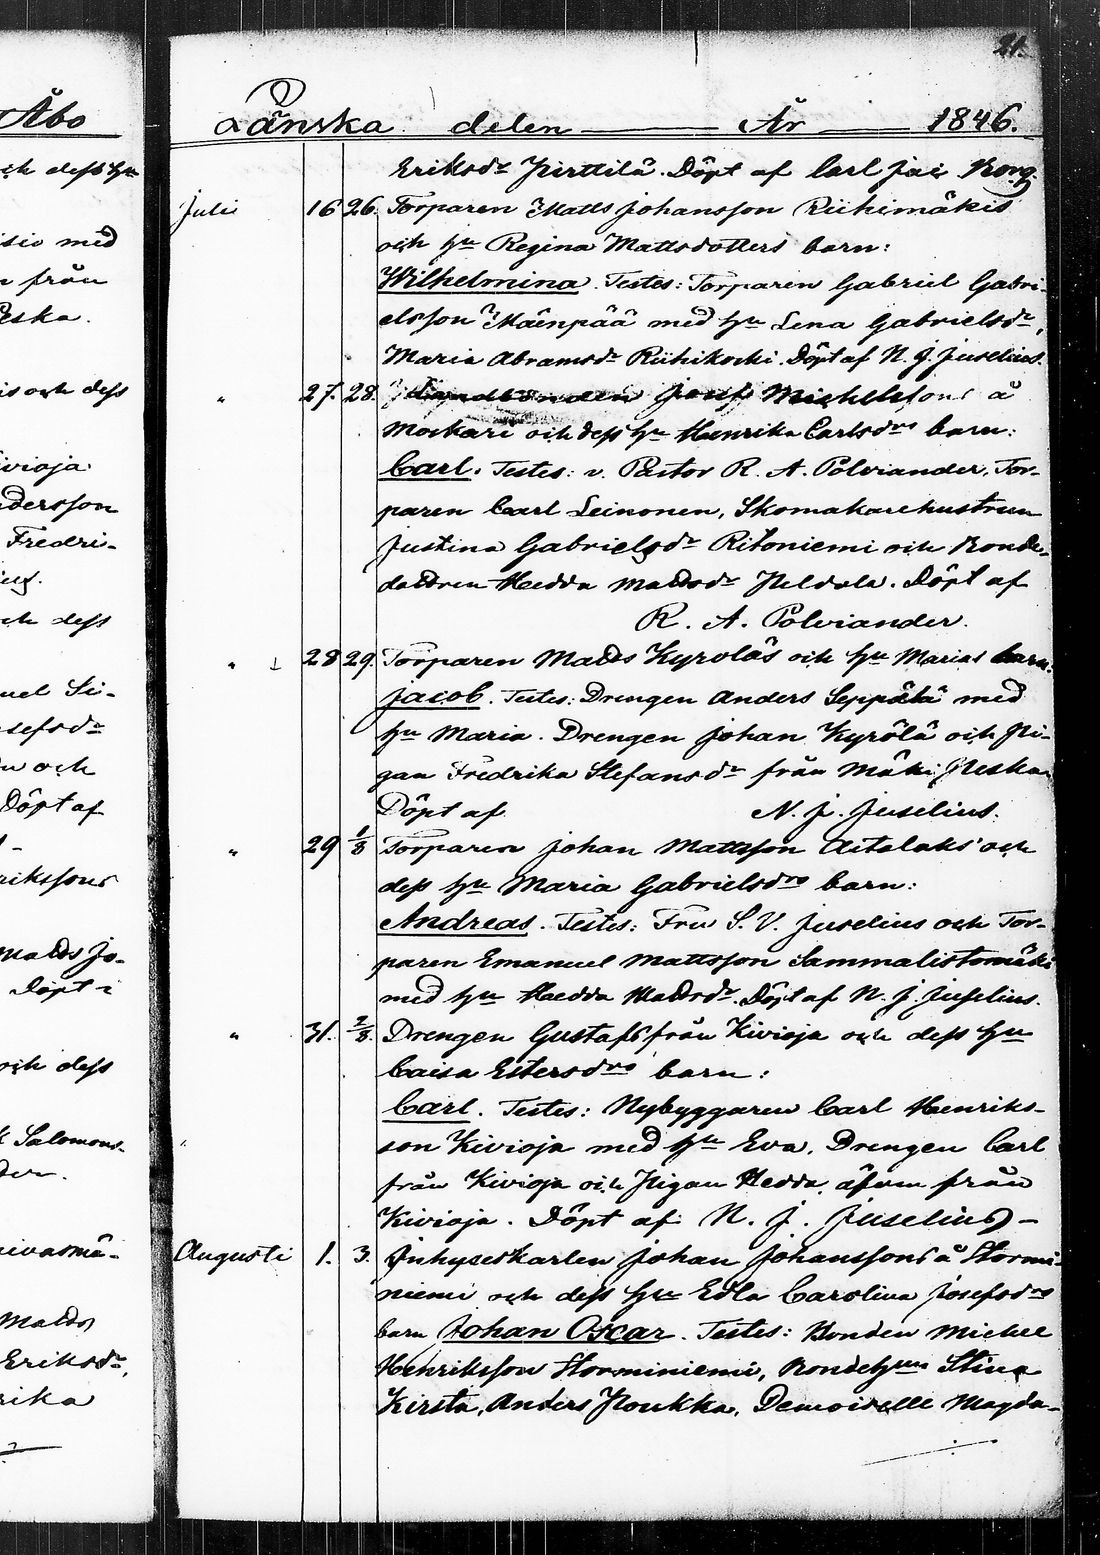 Åbo
och dess hu
med
från
Peska.
is och dess
ivioja
ndersson
Fredri-
och dess
uel Si-
sefsdr
och
Döpt af
rikssons
Matts Jo-
Döpt i
och dess
k Salomons-
der.
Matts
Eriksdr,
rika
21.
Länska delen — År — 1846.
Eriksdr Pirttilä. Döpt af Carl Jac. Borg.
Juli 16 26. Torparen Matts Johansson Riihimäkis
och hu Regina Mattsdotters barn:
Wilhelmina. Testes: Torparen Gabriel Gabri-
elsson Mäenpää med hu Lena Gabrielsdr,
Maria Abramsdr Riihikoski. Döpt af N. J. Juselius.
" 27. 28. Landbonden Josef Michelssons å
Mockari och dess hu Henrika Carlsdrs barn:
Carl. Testes: v. Pastor R. A. Polviander, Tor-
paren Carl Leinonen, Skomakarehustrun
Justina Gabrielsdr Ritoniemi och Bonde-
dottren Hedda Mattsdr Heldala. Döpt af
R. A. Polviander.
" 28 29. Torparen Matts Kyröläs och hu Marias barn:
Jacob. Testes: Drengen Anders Seppälä med
hu Maria. Drengen Johan Kyrölä och Pi-
gan Fredrika Stefansdr från Mäki Peska
Döpt af N. J. Juselius.
" 29 1/8 Torparen Johan Mattsson Aitalaks och
dess hu Maria Gabrielsdrs barn:
Andreas. Testes: Fru S. V. Juselius och Tor-
paren Emanuel Mattsson Sammalistomäki
med hu Hedda Mattsdr. Döpt af N. J. Juselius.
" 31. 2/8. Drengen Gustafs från Kivioja och dess hu
Caisa Estersdrs barn:
Carl. Testes: Nybyggaren Carl Henriks-
son Kivioja med hu Eva. Drengen Carl
från Kivioja och Pigan Hedda, äfven från
Kivioja. Döpt af N. J. Juselius) –
Augusti 1. 3. Inhyseskarlen Johan Johanssons å Stormi-
niemi och dess hu Edla Carolina Josefsdrs
barn Johan Oscar. Testes: Bonden Michel
Henriksson Storminiemi, Bondehun Stina
Kirsta, Anders Houkka, Demoiselle Magda-